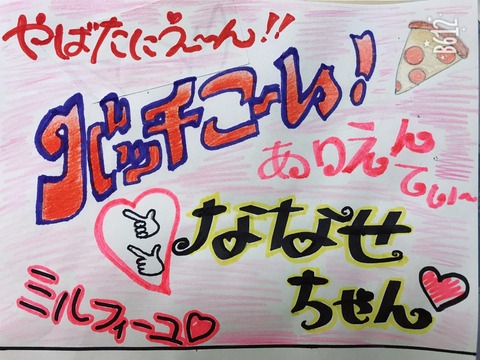 やばたにえ〜ん!!
B612
バッチこーい!
ありえん
てぃ〜
ななせ
ちゃん
ミルフィーユ♡